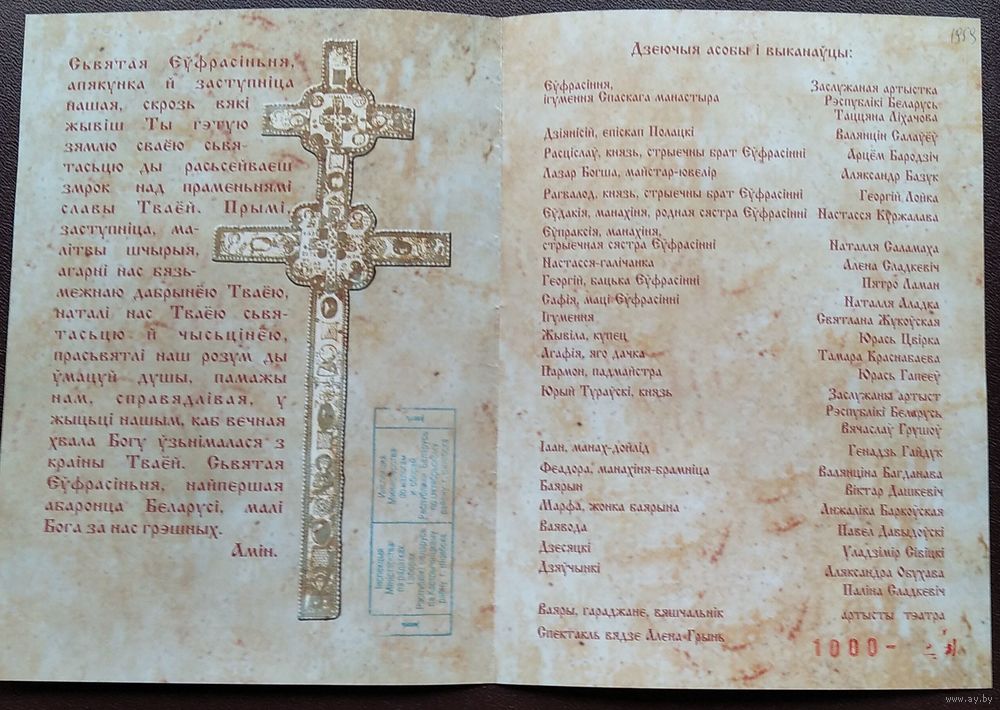 Сьвятая Еўфрасіньня,
апякунка й заступніца
нашая, скрозь вякі
жывіш Ты гэтую
зямлю сваёю сьвя-
тасьцю ды расьсейваеш
змрок над праменьнямі
славы Тваёй. Прымі,
заступніца, ма-
літвы шчырыя,
агарні нас вязь-
межнаю дабрынёю Тваёю,
наталі нас Тваёю сьвя-
тасьцю й чысьцінёю,
прасьвятлі наш розум ды
ўмацуй душы, памажы
нам, справядлівая, у
жыцьці нашым, каб вечная
хвала Богу ўзьнімалася з
краіны Тваёй. Сьвятая
Еўфрасіньня, найпершая
абаронца Беларусі, малі
Бога за нас грэшных.
Амін.
1959
Дзеючыя асобы і выканаўцы:
Еўфрасіння, Заслужаная артыстка
ігумення Спаскага манастыра Рэспублікі Беларусь
Таццяна Ліхачова
Дзіянісій, епіскап Полацкі Валянцін Салаўёў
Расціслаў, князь, стрыечны брат Еўфрасінні Арцём Бародзіч
Лазар Богша, майстар-ювелір Аляксандр Базук
Рагвалод, князь, стрыечны брат Еўфрасінні Георгій Лойка
Еўдакія, манахіня, родная сястра Еўфрасінні Настасся Куржалава
Еўпраксія, манахіня,
стрыечная сястра Еўфрасінні Наталля Саламаха
Настасся-галічанка Алена Сладкевіч
Георгій, бацька Еўфрасінні Пятро Ламан
Сафія, маці Еўфрасінні Наталля Аладка
Ігумення Святлана Жукоўская
Жывіла, купец Юрась Цвірка
Агафія, яго дачка Тамара Краснабаева
Пармон, падмайстра Юрась Гапееў
Юрый Тураўскі, князь Заслужаны артыст
Рэспублікі Беларусь
Вячаслаў Грушоў
Іаан, манах-дойлід Генадзь Гайдук
Феадора, манахіня-брамніца Валянціна Багданава
Баярын Віктар Дашкевіч
Марфа, жонка баярына Анжаліка Баркоўская
Ваявода Павел Давыдоўскі
Дзесяцкі Уладзімір Сівіцкі
Дзяўчынкі Аляксандра Обухава
Паліна Сладкевіч
Ваяры, гараджане, вяшчальнік артысты тэатра
Спектакль вядзе Алена Грынь
1000-
www.ay.by